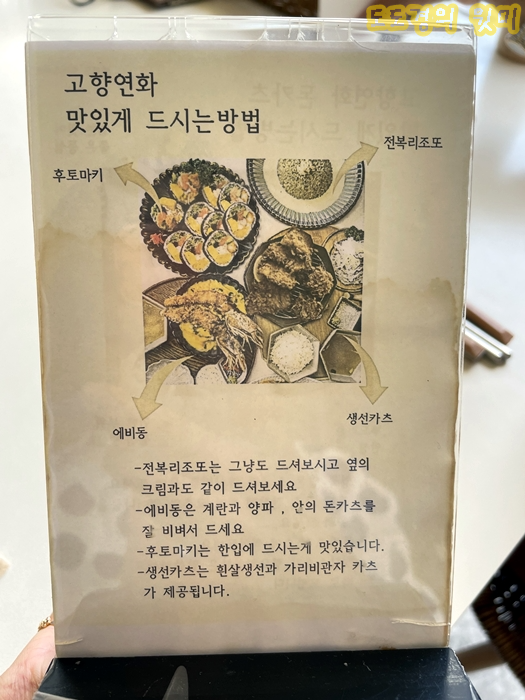 또또검의 일기
고향연화
맛있게 드시는방법
전복리조또
후토마키
에비동
생선카츠
-전복리조또는 그냥도 드셔보시고 옆의
크림과도 같이 드셔보세요
-에비동은 계란과 양파 , 안의 돈카츠를
잘 비벼서 드세요
-후토마키는 한입에 드시는게 맛있습니다.
-생선카츠는 흰살생선과 가리비관자 카츠
가 제공됩니다.